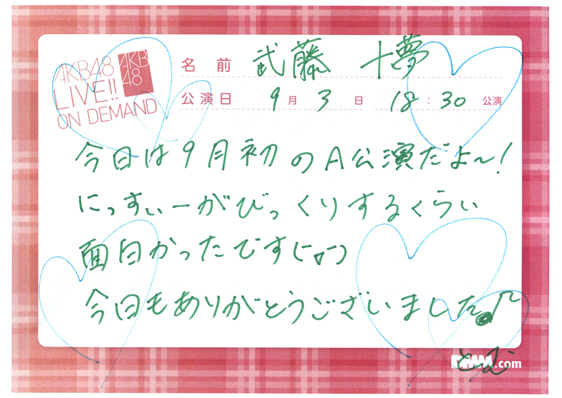 AKB48
LIVE!!
ON DEMAND
AKB
48
名前 武藤 十夢
公演日 9月 3日 18:30 公演
今日は9月初のA公演だよ〜!
にっすぃーがびっくりするくらい
面白かったです(ˇωˇ)
今日もありがとうございました♪
とむ
DMM.com